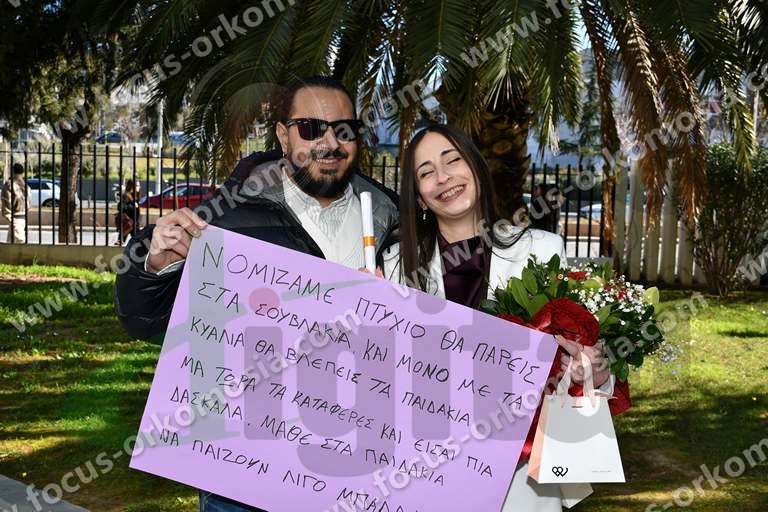 ΝΟΜΙΖΑΜΕ ΠΤΥΧΙΟ ΘΑ ΠΑΡΕΙΣ
ΣΤΑ ΣΟΥΒΛΑΚΙΑ. ΚΑΙ ΜΟΝΟ ΜΕ ΤΑ
ΚΥΑΛΙΑ ΘΑ ΒΛΕΠΕΙΣ ΤΑ ΠΑΙΔΑΚΙΑ
ΜΑ ΤΩΡΑ ΤΑ ΚΑΤΑΦΕΡΕΣ ΚΑΙ ΕΙΣΑΙ ΠΙΑ
ΔΑΣΚΑΛΑ. ΜΑΘΕ ΣΤΑ ΠΑΙΔΑΚΙΑ
ΝΑ ΠΑΙΖΟΥΝ ΛΙΓΟ
www.focus-orkomosia.com
digital